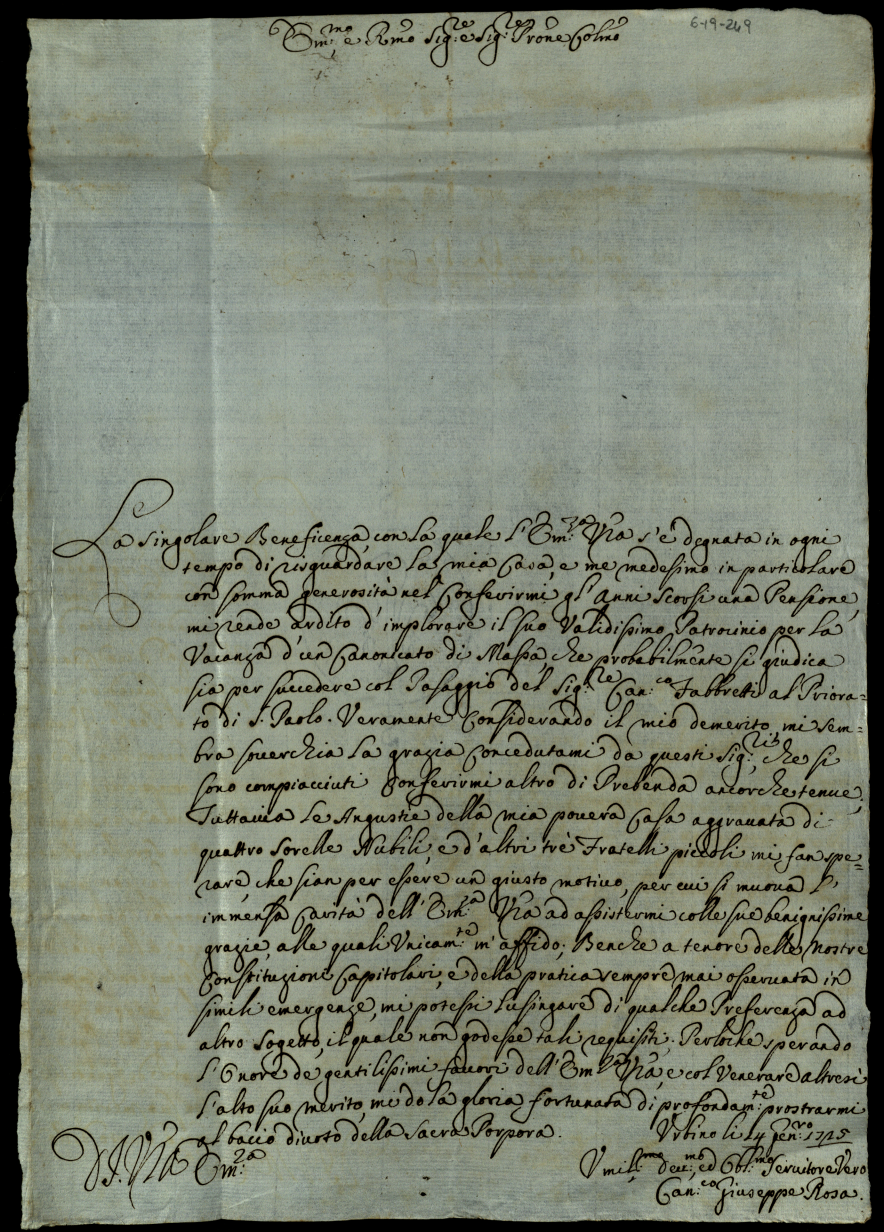 6-19-249
Em:mo e Rmo Sig:re e Sig:re Prone Colmo
La singolare Beneficenza, con la quale l'Em:za Vra s'è degnata in ogni
tempo di risguardare la mia Casa, e me medesimo in particolare
con somma generosità nel Conferirmi gl'Anni Scorsi una Pensione,
mi rende ardito d'implorare il suo Validissimo Patrocinio per la
Vacanza d'un Canonicato di Massa che probabilmente si giudica
sia per succedere col Pasaggio del Sig:re Can:co Fabbretti al Priora=
to di S. Paolo. Veramente Considerando il mio demerito, mi sem=
bra soverchia la grazia Concedutami da questi Sig:ri, che si
sono compiacciuti Conferirmi altro di Prebenda ancorche tenue;
Tuttavia le Angustie della mia povera Casa aggravata di
quattro Sorelle Nubili, e d'altri trè Fratelli piccoli mi fan spe=
rare, che sian per essere un giusto motivo, per cui si muova l'
immensa Carità dell'Em:za Vra ad assistermi colle sue benignissime
grazie, alle quali Unicam:te m'affido; Benche a tenore delle Nostre
Constituzioni Capitolari, e della pratica sempre mai osservata in
simili emergenze, mi potessi lusingare di qualche Preferenza ad
altro Sogetto, il quale non godesse tali requisiti. Perloche sperando
l'Onore de gentilissimi favori dell'Em:za Vra, e col Venerare altresì
l'alto suo merito, mi do la gloria fortunata di profondam:te prostrarmi
al bacio divoto della Sacra Porpora. Urbino li 14 Gen:ro 1715
D. V. Vra Em:za
Umil:mo dev:mo ed Obl:mo Servitore Vero
Can:co Giuseppe Rosa.